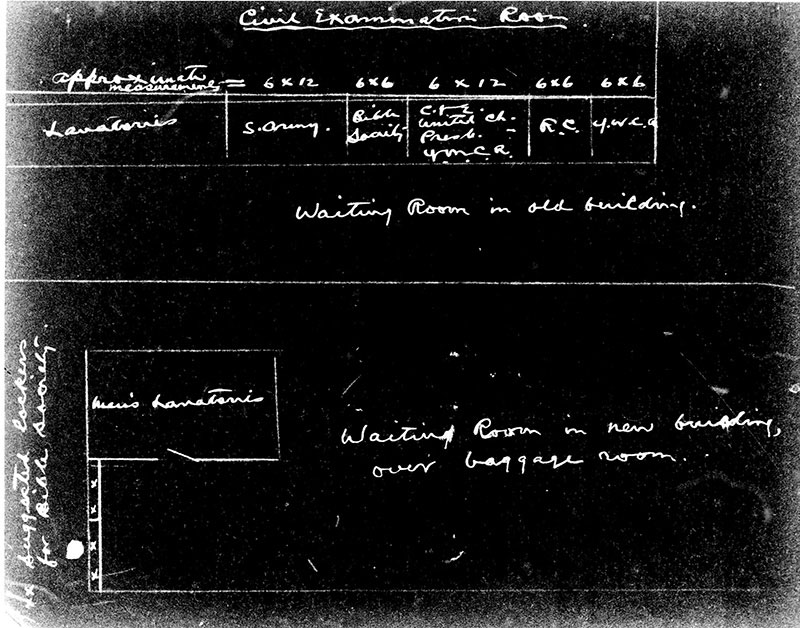 Civil Examination Room
approximate measurements = 6 x 12 6 x 6 6 x 12 6 x 6 6 x 6
Lavatories
S. Army.
Bible
Society
C. of E.
United Ch.
Presb.
Y.M.C.A.
R.C.
Y.W.C.A
Waiting Room in old building.
Men's Lavatories
Waiting Room in new building,
over baggage room.
x x x x
suggested lockers
for Bible Society.